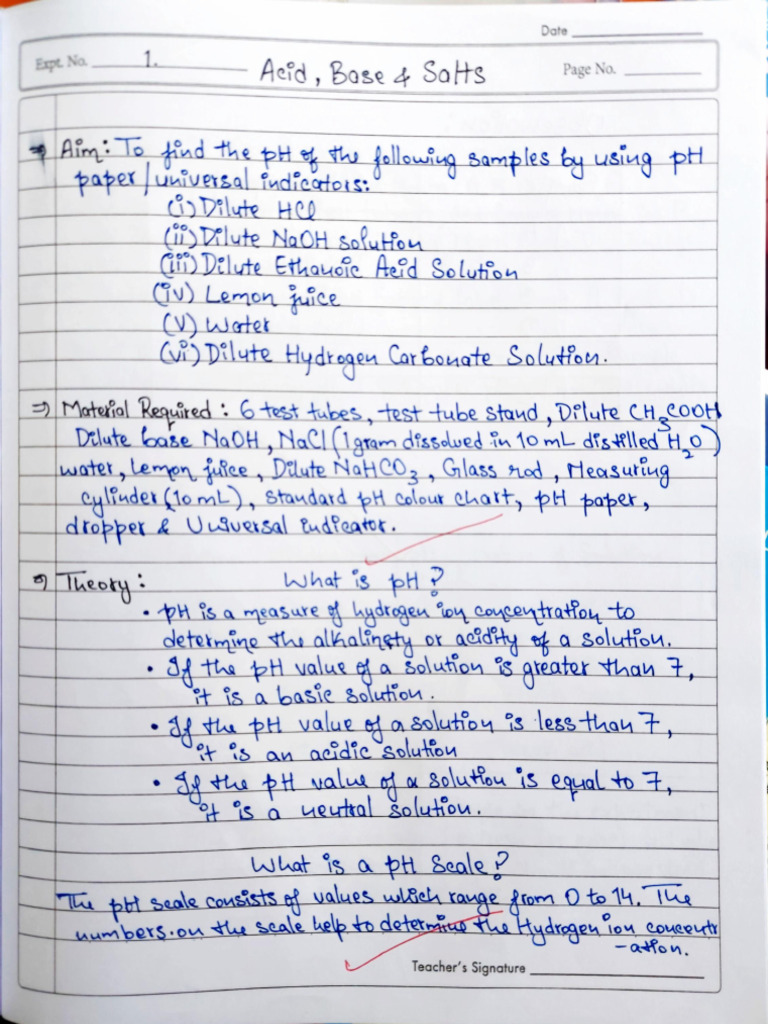 Date
Expt. No. 1.
Acid, Base & Salts
Page No.
⇒ Aim: To find the pH of the following samples by using pH
paper/universal indicators:
(i) Dilute HCl
(ii) Dilute NaOH solution
(iii) Dilute Ethanoic Acid Solution
(iv) Lemon juice
(v) Water
(vi) Dilute Hydrogen Carbonate Solution.
⇒ Material Required: 6 test tubes, test tube stand, Dilute CH₃COOH
Dilute base NaOH, NaCl (1 gram dissolved in 10 mL distilled H₂O)
water, Lemon juice, Dilute NaHCO₃, Glass rod, Measuring
cylinder (10 mL), standard pH colour chart, pH paper,
dropper & Universal indicator.
⇒ Theory: What is pH?
• pH is a measure of hydrogen ion concentration to
determine the alkalinety or acidity of a solution.
• If the pH value of a solution is greater than 7,
it is a basic solution.
• If the pH value of a solution is less than 7,
it is an acidic solution
• If the pH value of a solution is equal to 7,
it is a neutral solution.
What is a pH Scale?
The pH scale consists of values which range from 0 to 14. The
numbers on the scale help to determine the Hydrogen ion concentr
-ation.
Teacher's Signature